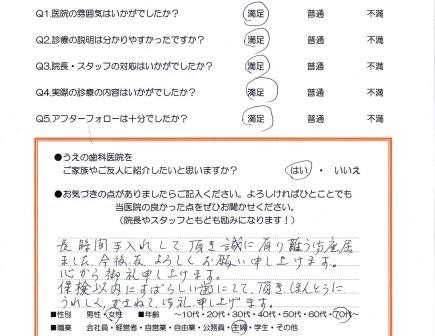 Q1.医院の雰囲気はいかがでしたか? 満足 普通 不満
Q2.診療の説明は分かりやすかったですか? 満足 普通 不満
Q3.院長・スタッフの対応はいかがでしたか? 満足 普通 不満
Q4.実際の診療の内容はいかがでしたか? 満足 普通 不満
Q5.アフターフォローは十分でしたか? 満足 普通 不満
●うえの歯科医院を
ご家族やご友人に紹介したいと思いますか? はい ・ いいえ
●お気づきの点がありましたらご記入ください。よろしければひとことでも
当医院の良かった点をぜひお聞かせください。
(院長やスタッフともども励みになります!)
長時間手入れして頂き誠に有り難う御座居
ました 今後共よろしくお願い申し上げます。
心から御礼申し上げます。
保険以内にすばらしい歯にして、頂き、ほんとうに
うれしく、かさねて、御礼、申し上げます。
■性別 男性・女性 ■年齢 ～10代・20代・30代・40代・50代・60代・70代～
■職業 会社員・経営者・自営業・自由業・公務員・主婦・学生・その他